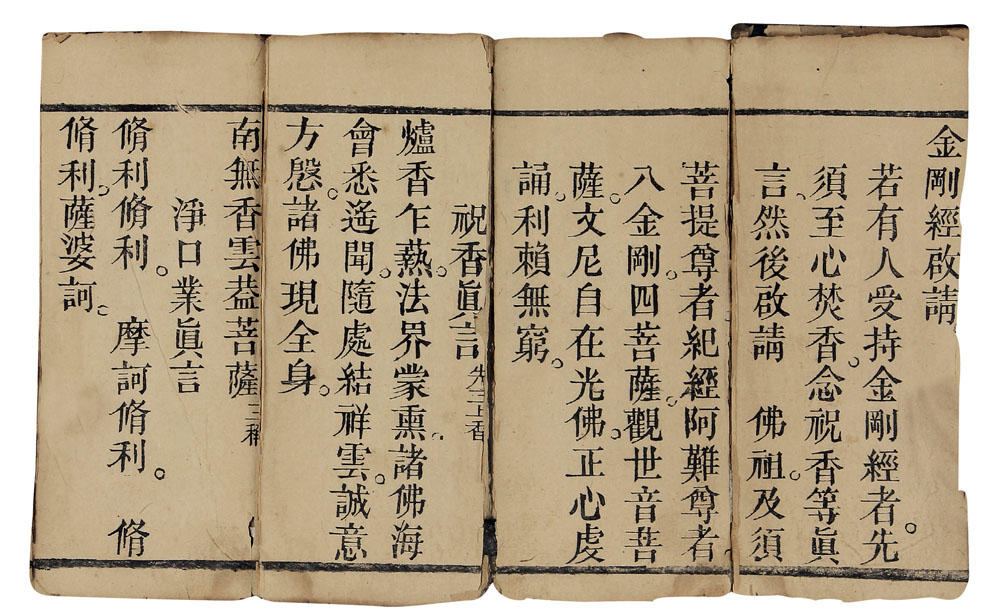 金剛經啟請
若有人受持金剛經者。先
須至心焚香。念祝香等眞
言。然後啟請　佛祖。及須
菩提尊者紀經阿難尊者。
八金剛。四菩薩。觀世音菩
薩。文尼自在光佛。正心虔
誦利賴無窮。
祝香眞言 先三上香
爐香乍爇。法界蒙熏。諸佛海
會悉遙聞。隨處結祥雲。誠意
方慇。諸佛現全身。
南無香雲葢菩薩 三稱
淨口業眞言
脩利脩利。　摩訶脩利。　脩
脩利。薩婆訶。